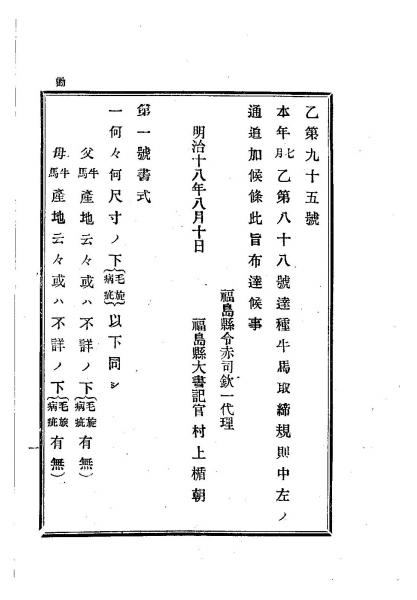 勧
乙第九十五號
本年七月乙第八十八號達種牛馬取締規則中左ノ
通追加候條此旨布達候事
福島縣令赤司欽一代理
明治十八年八月十日 福島縣大書記官村上楯朝
第一號書式
一何々何尺寸ノ下(毛旋病疵)以下同シ
父牛馬產地云々或ハ不詳ノ下(毛旋病疵有無)
母牛馬產地云々或ハ不詳ノ下(毛旋病疵有無)
一